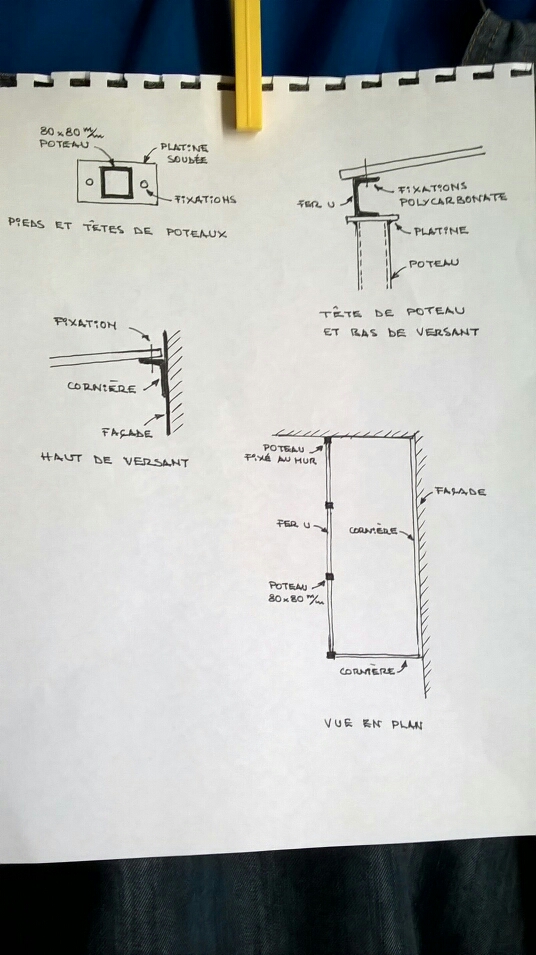 80x80 m/m
POTEAU
PLATINE
SOUDÉE
FIXATIONS
PIEDS ET TÊTES DE POTEAUX
FER U
FIXATIONS
POLYCARBONATE
PLATINE
POTEAU
TÊTE DE POTEAU
ET BAS DE VERSANT
FIXATION
CORNIÈRE
FAÇADE
HAUT DE VERSANT
POTEAU
FIXÉ AU MUR
FAÇADE
FER U
CORNIÈRE
POTEAU
80x80 m/m
CORNIÈRE
VUE EN PLAN